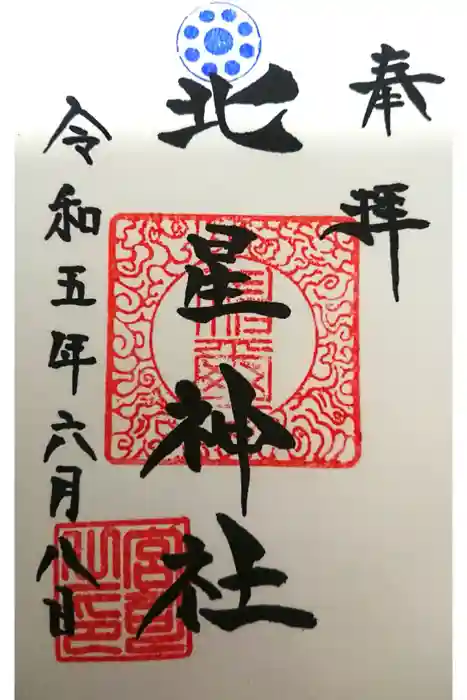 奉拝
北星神社
令和五年六月八日